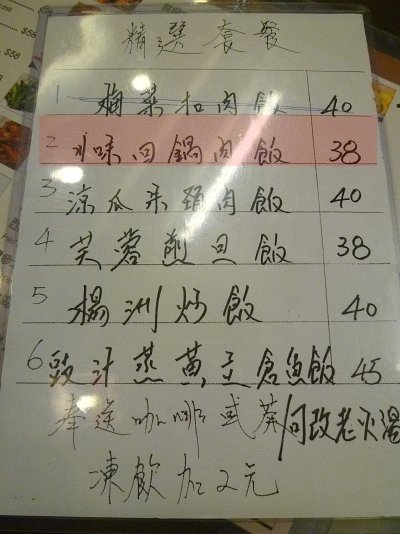 精選套餐
1 梅菜扣肉飯 40
2 川味回鍋肉飯 38
3 涼瓜朱頸肉飯 40
4 芙蓉煎旦飯 38
5 楊洲炒飯 40
6 豉汁蒸黄立倉魚飯 45
奉送咖啡或茶/可改老火湯
凍飲加2元
$58